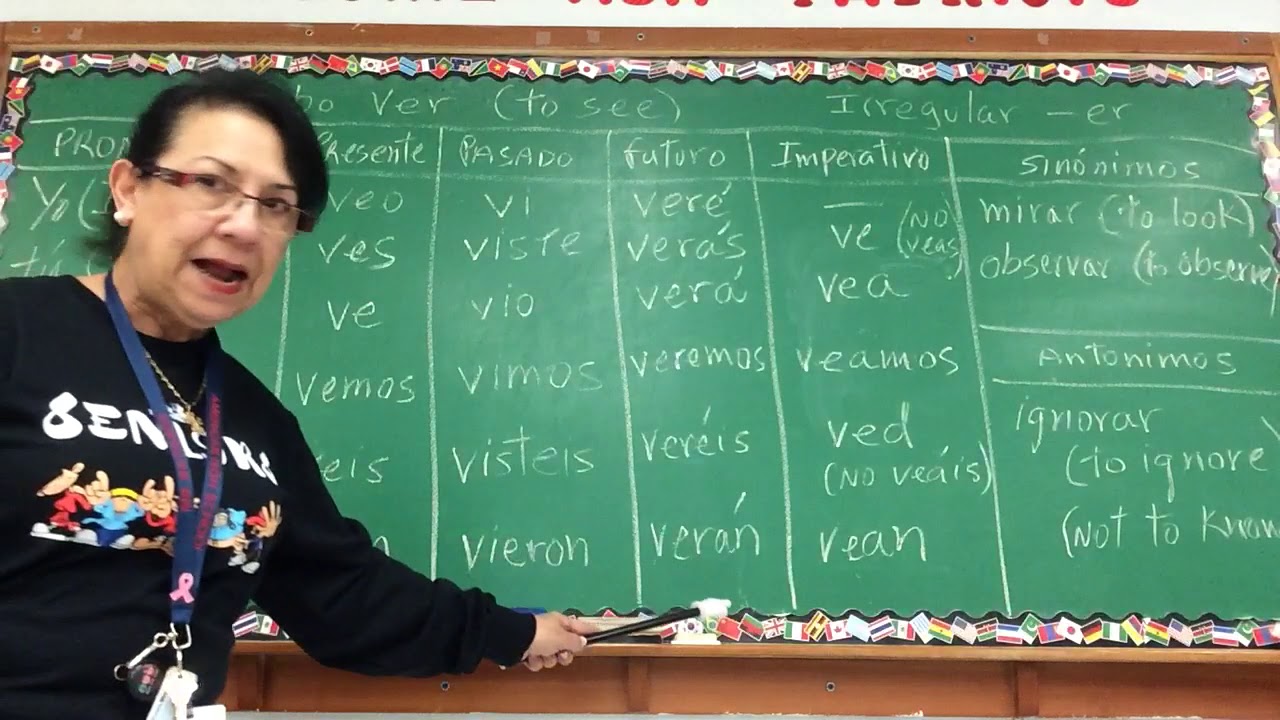 ver (to see) Irregular -er
Presente PASADO futuro Imperativo SINÓNIMOS
Yo veo vi veré — mirar (to look)
tú ves viste verás ve (NO veas) observar (to observe)
ve vio verá vea
vemos vimos veremos veamos ANTÓNIMOS
visteis veréis ved (NO veáis) ignorar (to ignore
vieron verán vean (Not to know
SENIORS